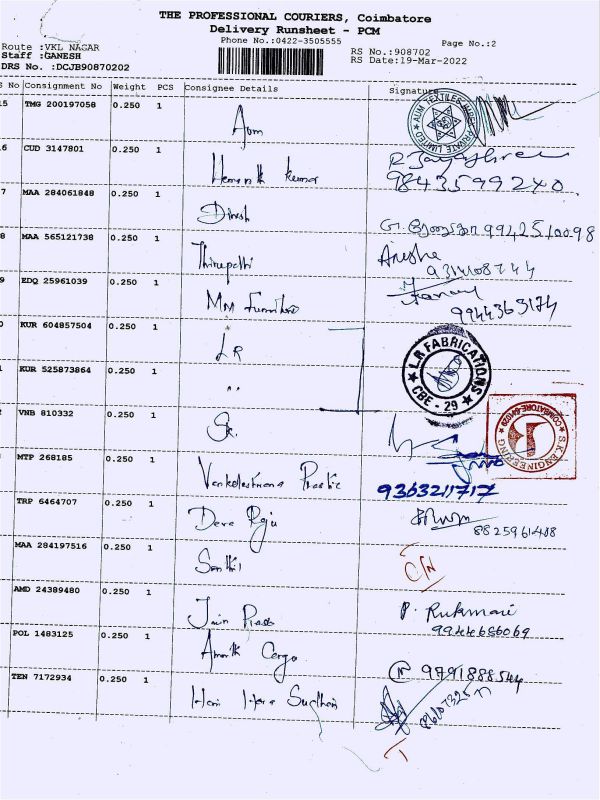 THE PROFESSIONAL COURIERS, Coimbatore
Delivery Runsheet - PCM
Phone No.:0422-3505555
Page No.:2
Route :VKL NAGAR
Staff :GANESH
DRS No. :DCJB90870202
RS No.:908702
RS Date:19-Mar-2022
S No Consignment No Weight PCS Consignee Details Signature
15 TMG 200197058 0.250 1 Aum
AUM TEXTILES PRIVATE LIMITED
6 CUD 3147801 0.250 1 Hemanth Kumar
9843599240
7 MAA 284061848 0.250 1 Dinesh 9942510098
8 MAA 565121738 0.250 1 Thirupathi
9 EDQ 25961039 0.250 1 MM Furniture
9944363174
0 KUR 604857504 0.250 1 LR
L.R FABRICATIONS
CBE - 29
KUR 525873864 0.250 1 "
VNB 810332 0.250 1 SK.
S.K. ENGINEERING
COIMBATORE-641029
MTP 268185 0.250 1 Plastic
9363211717
TRP 6464707 0.250 1 Deva Raju
8825961488
MAA 284197516 0.250 1 Senthil
C/N
AMD 24389480 0.250 1 Jain P. Rukmani
9944656069
POL 1483125 0.250 1 Cargo
9791888544
TEN 7172934 0.250 1 Hari Hara Sudhan